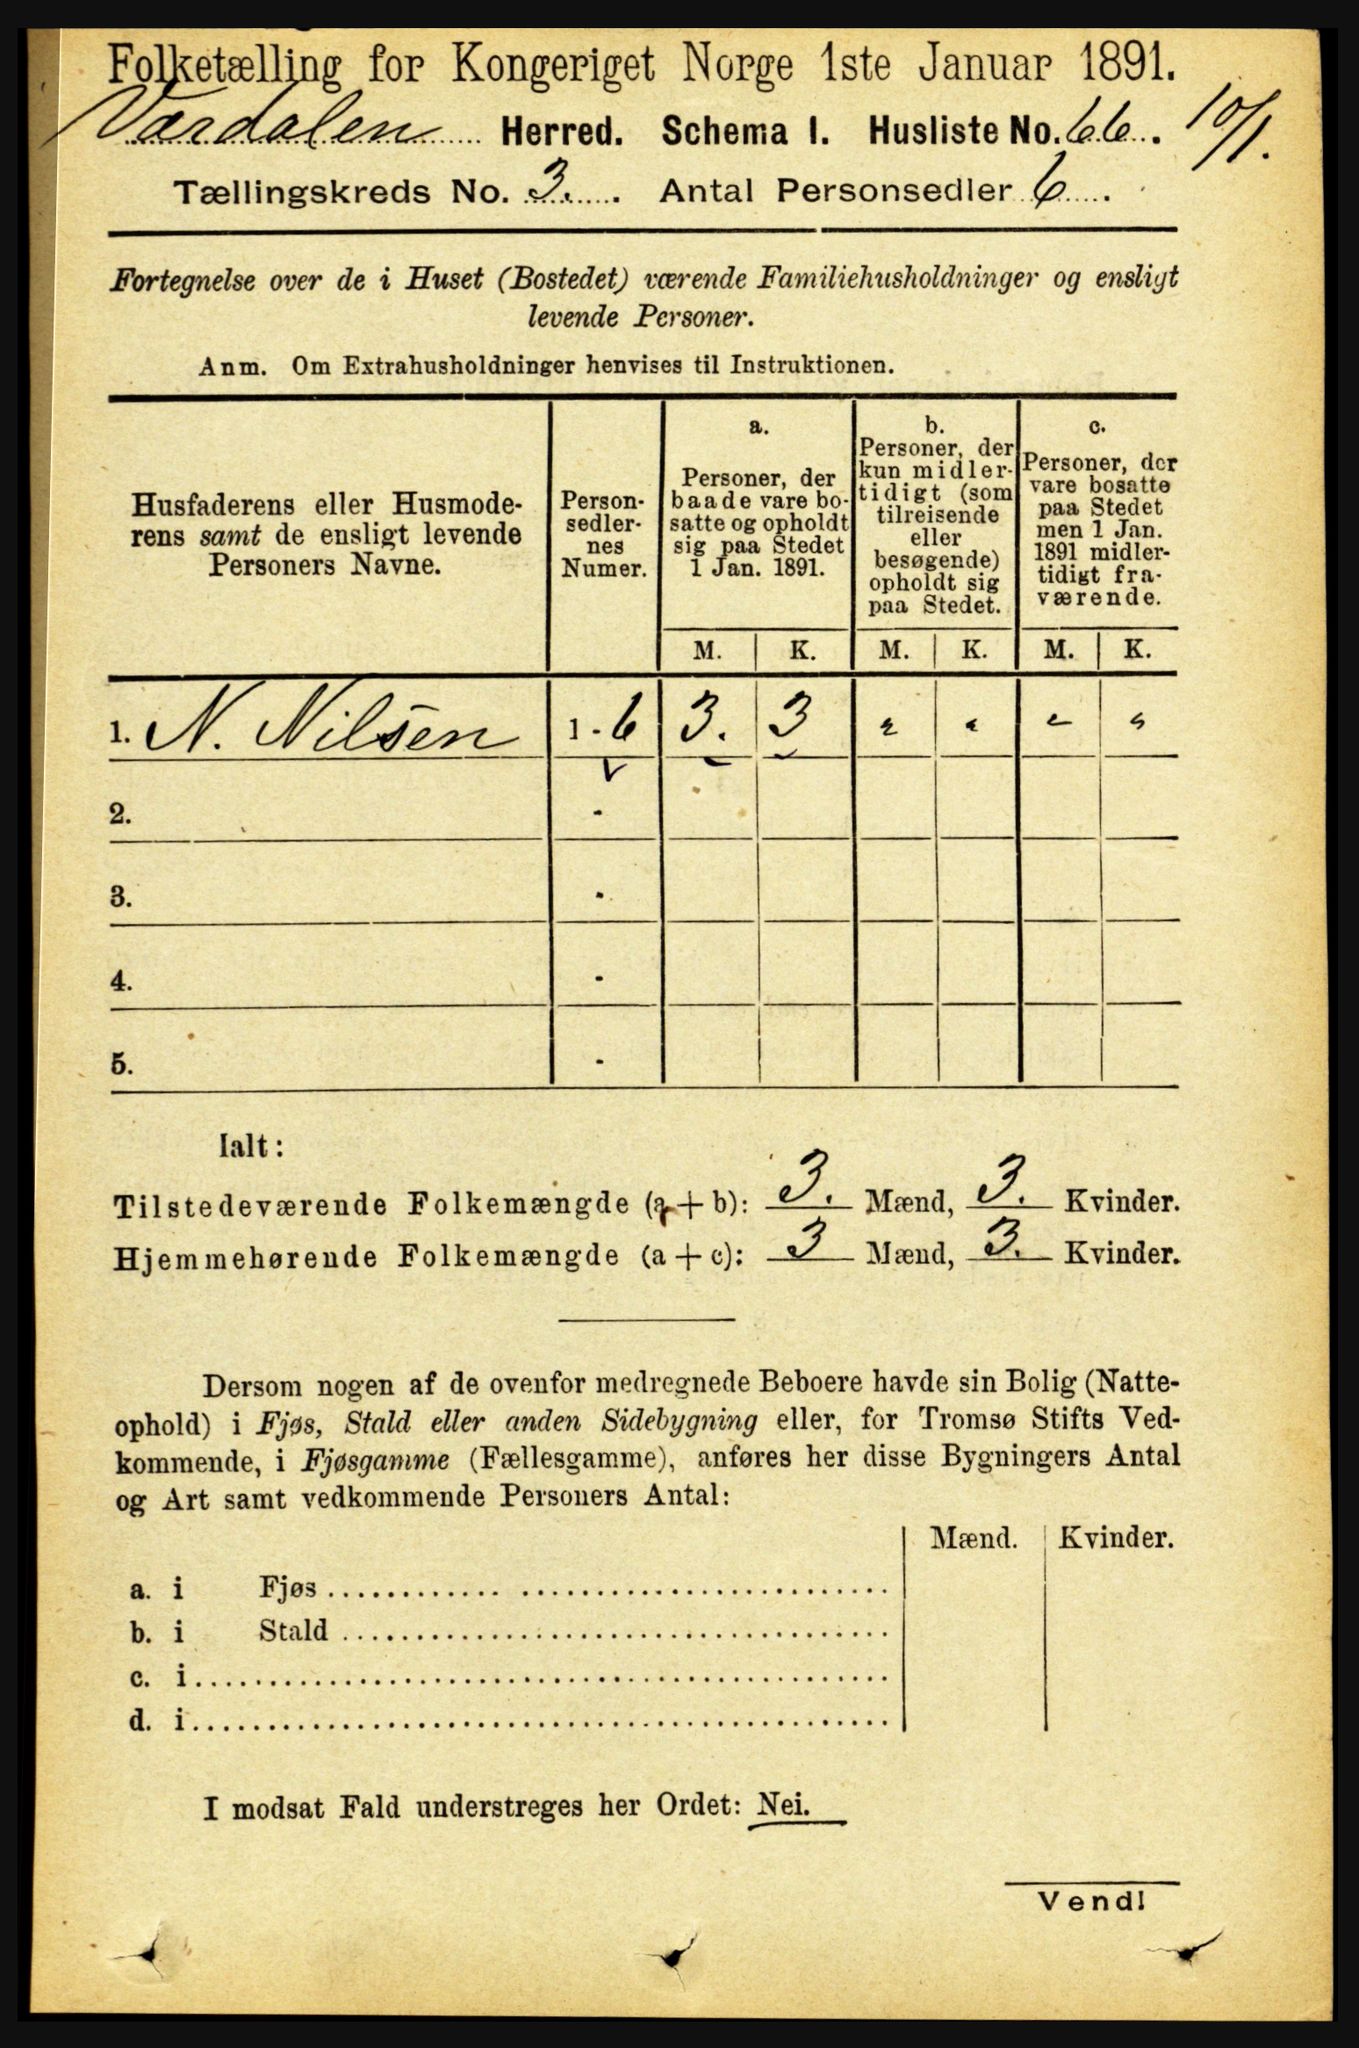 Folketælling for Kongeriget Norge 1ste Januar 1891.
Værdalen Herred. Schema I. Husliste No. 66. 10/1.
Tællingskreds No. 3. Antal Personsedler 6.
Fortegnelse over de i Huset (Bostedet) værende Familiehusholdninger og ensligt
levende Personer.
Anm. Om Extrahusholdninger henvises til Instruktionen.
Husfaderens eller Husmode-
rens samt de ensligt levende
Personers Navne.
Person-
sedler-
nes
Numer.
a.
Personer, der
baade vare bo-
satte og opholdt
sig paa Stedet
1 Jan. 1891.
b.
Personer, der
kun midler-
tidigt (som
tilreisende
eller
besøgende)
opholdt sig
paa Stedet.
c.
Personer, der
vare bosatte
paa Stedet
men 1 Jan.
1891 midler-
tidigt fra-
værende.
M. K. M. K. M. K.
1. N. Nilsen 1 - 6 3. 3 " " " "
2. -
3. -
4. -
5. -
Ialt:
Tilstedeværende Folkemængde (a + b): 3. Mænd, 3. Kvinder.
Hjemmehørende Folkemængde (a + c): 3 Mænd, 3. Kvinder.
Dersom nogen af de ovenfor medregnede Beboere havde sin Bolig (Natte-
ophold) i Fjøs, Stald eller anden Sidebygning eller, for Tromsø Stifts Ved-
kommende, i Fjøsgamme (Fællesgamme), anføres her disse Bygningers Antal
og Art samt vedkommende Personers Antal:
Mænd. Kvinder.
a. i Fjøs
b. i Stald
c. i
d. i
I modsat Fald understreges her Ordet: Nei.
Vend!